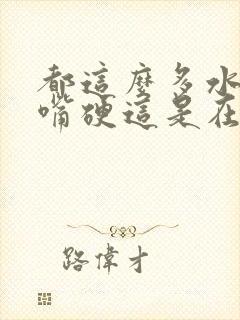 都這麼多水
嘴硬這是在
路偉才